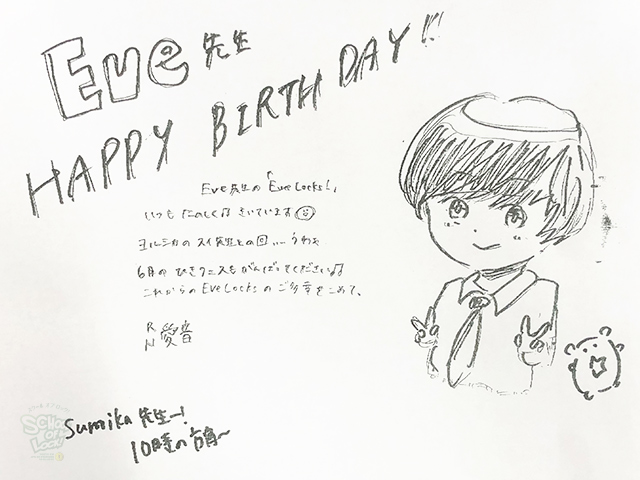 Eve先生
HAPPY BIRTH DAY!!
Eve先生の「Eve Locks!」
いつもたのしく♫きいています
ヨルシカのスイ先生との回....うわぁ
6月のひきフェスもがんばってください♫
これからのEve Locksのご多幸をこめて、
RN 愛音
Sumika先生ー!
10時の方角〜
SCHOOL OF LOCK!